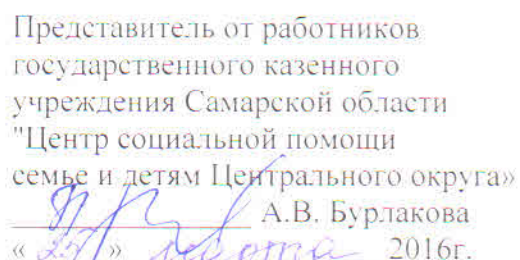 Представитель от работников
государственного казенного
учреждения Самарской области
"Центр социальной помощи
семье и детям Центрального округа»
А.В. Бурлакова
« 25 » марта 2016г.